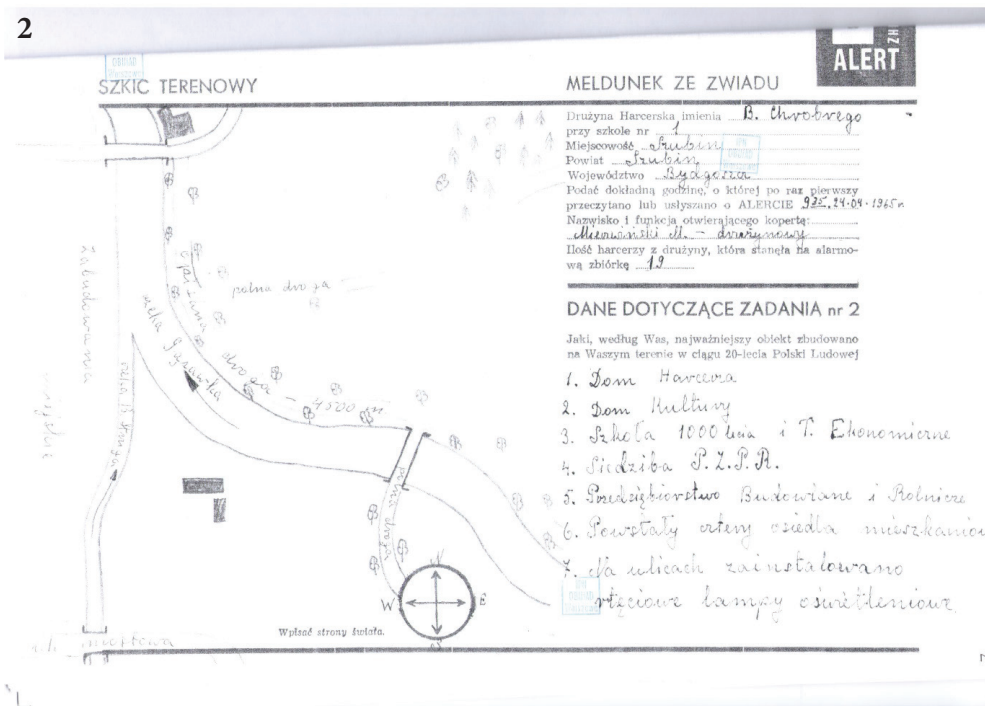 2
SZKIC TERENOWY
zabudowania
miejskie
opisana droga - 4500 m
polna droga
rzeka Gąsawka
rzeka B. Struga
polna droga
N
W E
S
Wpisać strony świata.
ul.
MELDUNEK ZE ZWIADU
ALERT
ZH
Drużyna Harcerska imienia B. Chrobrego
przy szkole nr 1
Miejscowość Szubin
Powiat Szubin
Województwo Bydgoszcz
Podać dokładną godzinę, o której po raz pierwszy
przeczytano lub usłyszano o ALERCIE 9³⁵, 24.04.1965 r.
Nazwisko i funkcja otwierającego kopertę:
M. – drużynowy
Ilość harcerzy z drużyny, która stanęła na alarmo-
wą zbiórkę 19
DANE DOTYCZĄCE ZADANIA nr 2
Jaki, według Was, najważniejszy obiekt zbudowano
na Waszym terenie w ciągu 20-lecia Polski Ludowej
1. Dom Harcerza
2. Dom Kultury
3. Szkoła 1000 lecia i T. Ekonomiczne
4. Siedziba P.Z.P.R.
5. Przedsiębiorstwo Budowlane i Rolnicze
6. Powstały cztery osiedla mieszkaniow
7. Na ulicach zainstalowano
rtęciowe lampy oświetleniowe